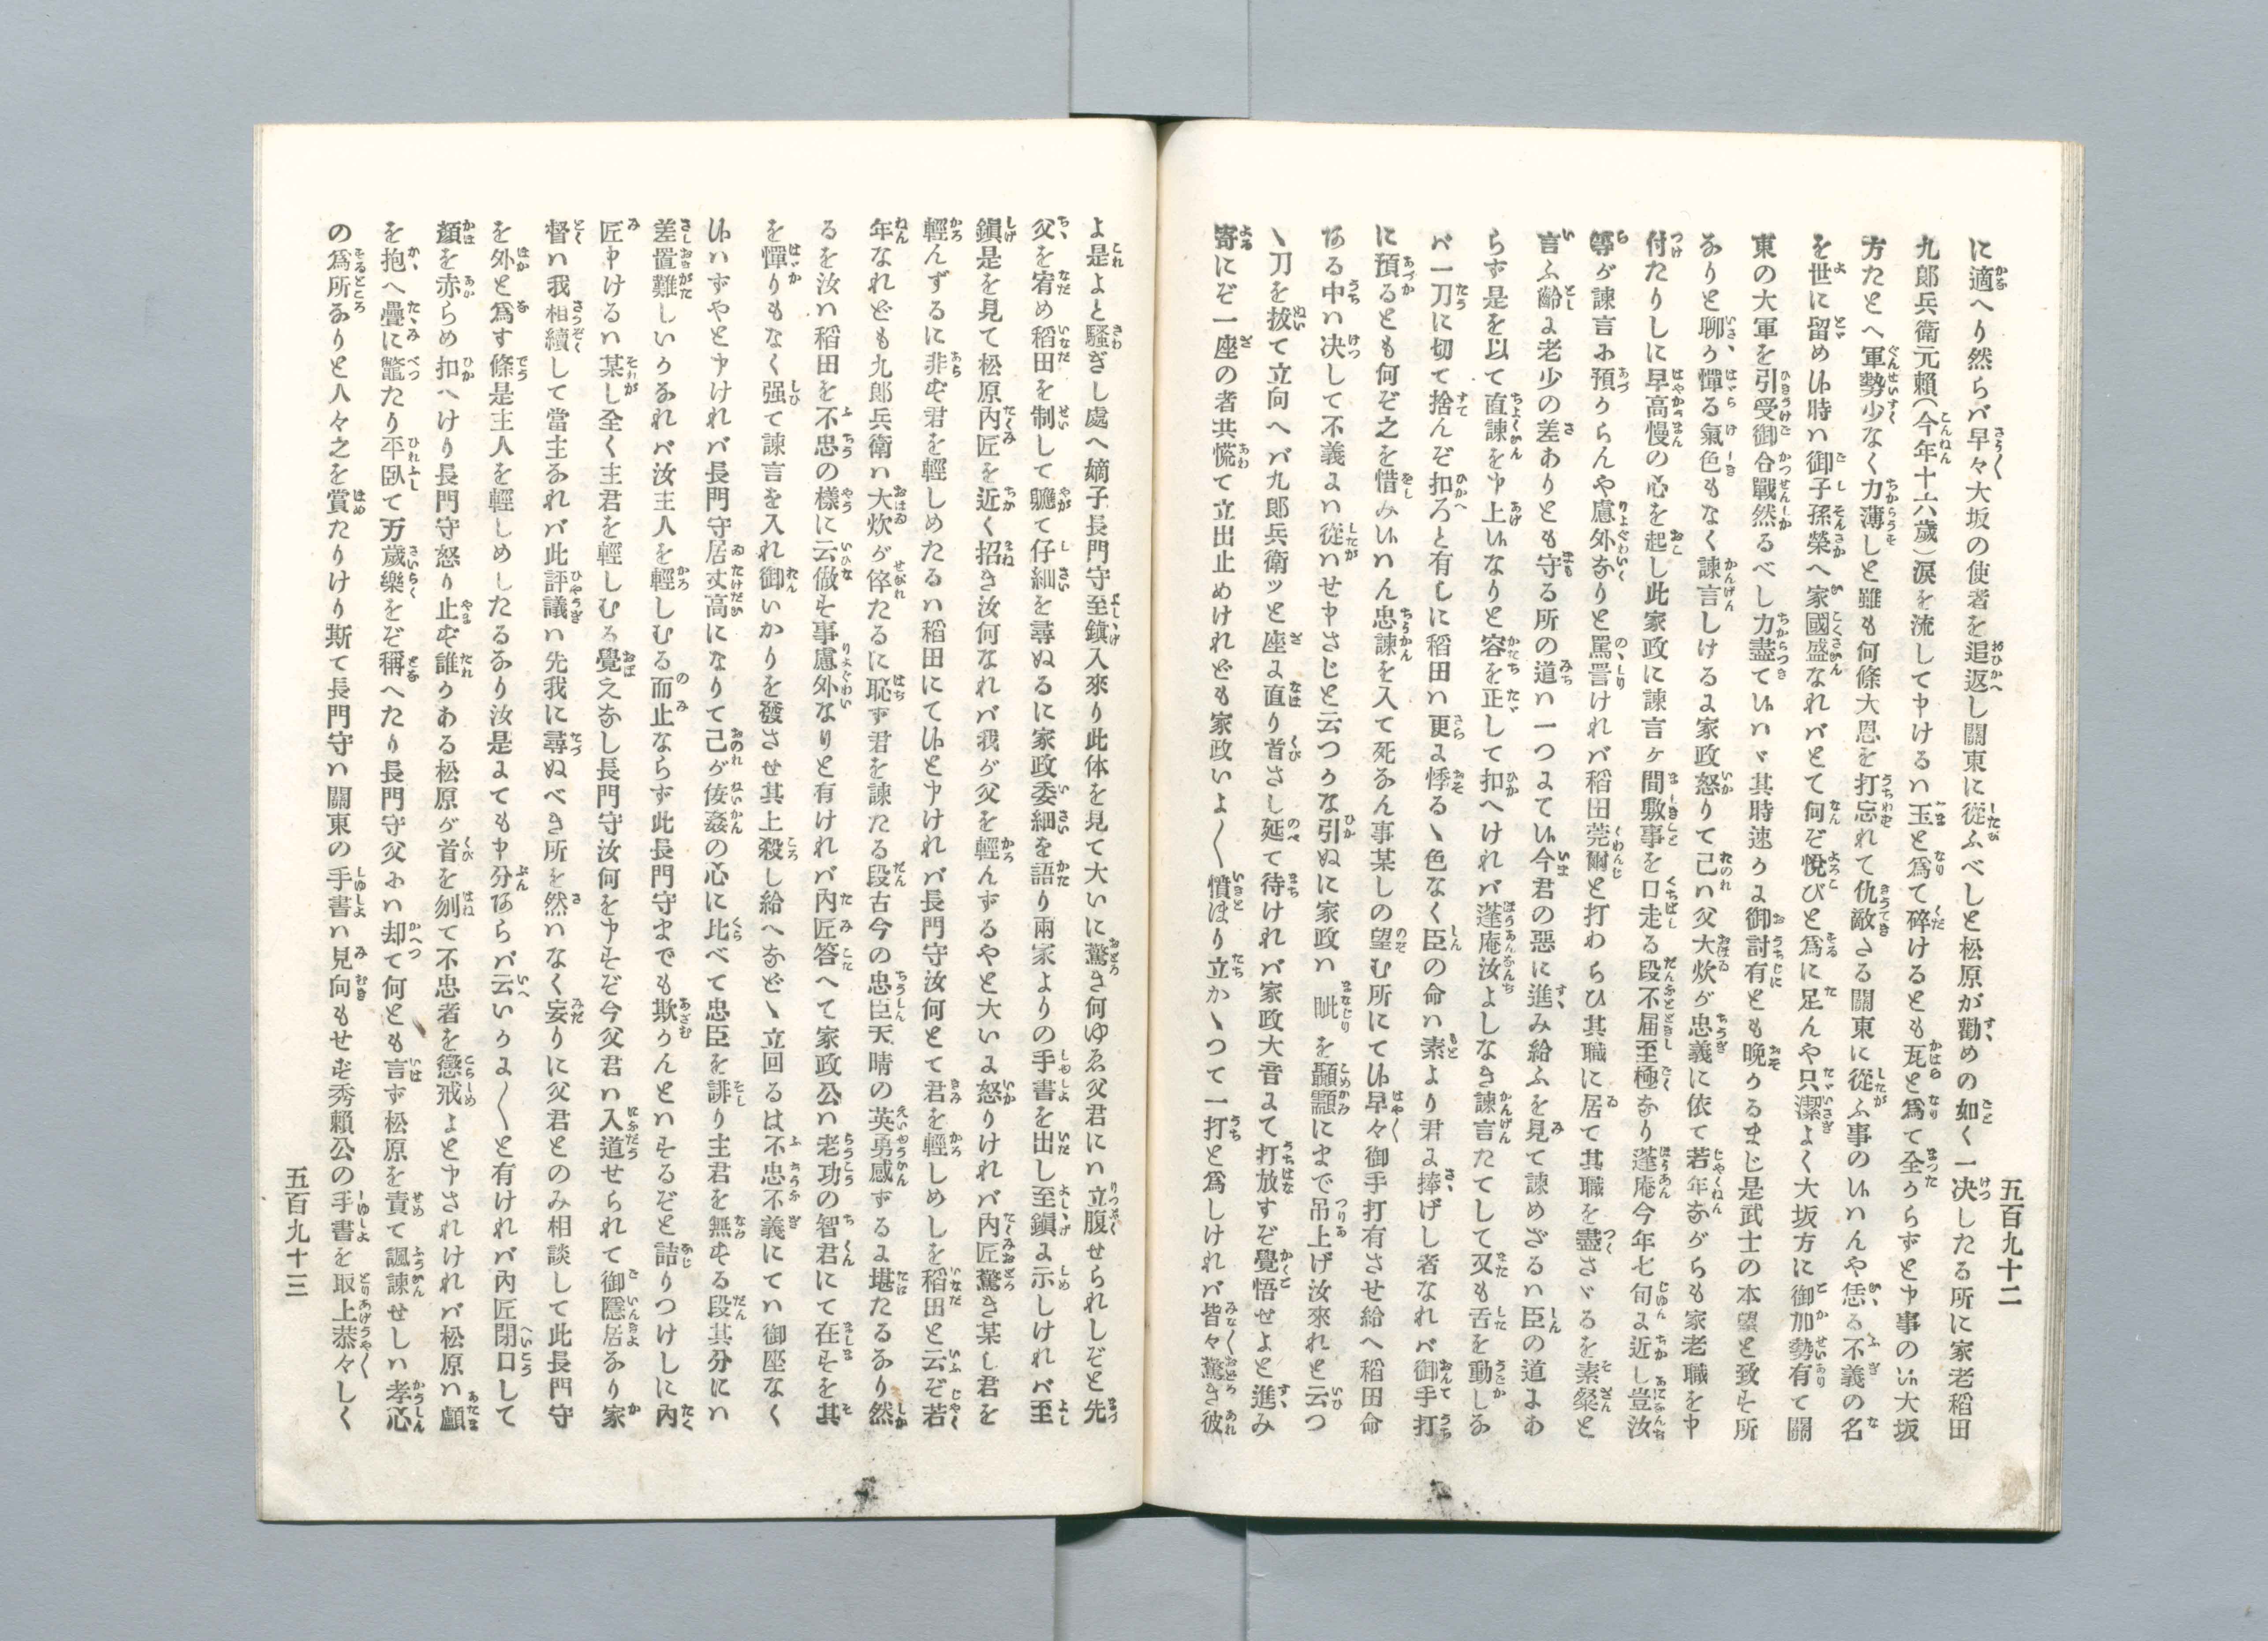 五百九十二
に適へり然らバ早々大坂の使者を追返し關東に從ふべしと松原が勸めの如く一决したる所に家老稻田
九郎兵衛元賴(今年十六歳)涙を流して申けるハ玉と爲て碎けるとも瓦と爲て全からずと申事の候大坂
方たとへ軍勢少なく力薄しと雖も何條大恩を打忘れて仇敵さる關東に從ふ事の候ハんや恁る不義の名
を世に留め候時ハ御子孫榮へ家國盛なれバとて何ぞ悅びと爲に足んや只潔よく大坂方に御加勢有て關
東の大軍を引受御合戰然るべし力盡て候ハヾ其時速かに御討有とも晩かるまじ是武士の本望と致す所
なりと聊か憚る氣色もなく諫言しけるに家政怒りて己ハ父大炊が忠義に依て若年ながらも家老職を申
付たりしに早高慢の心を起し此家政に諫言ヶ間敷事を口走る段不届至極なり蓬庵今年七旬に近し豈汝
等が諫言に預からんや慮外なりと罵詈けれバ稻田莞爾と打わらひ其職に居て其職を盡さヾるを素粲と
言ふ齢に老少の差ありとも守る所の道ハ一つにて候今君の惡に進み給ふを見て諫めざるハ臣の道にあ
らず是を以て直諫を申上候なりと容を正して扣へけれバ蓬庵汝よしなき諫言たてして又も舌を動しな
バ一刀に切て捨んぞ扣ろと有しに稻田ハ更に悸るヽ色なく臣の命ハ素より君に捧げし者なれバ御手打
に預るとも何ぞ之を惜み候ハん忠諫を入て死なん事某しの望む所にて候早々御手打有させ給へ稻田命
ある中ハ决して不義にハ從ハせ申さじと云つかな引ぬに家政ハ眦を顳顬にまで吊上げ汝來れと云つ
ヽ刀を拔て立向へバ九郎兵衛ッと座に直り首さし延て待けれバ家政大音にて打放すぞ覺悟せよと進み
寄にぞ一座の者共慌て立出止めけれども家政いよ〱憤ほり立かヽつて一打と爲しけれバ皆々驚き彼
よ是よと騷ぎし處へ嫡子長門守至鎭入來り此体を見て大いに驚き何ゆゑ父君にハ立腹せられしぞと先
父を宥め稻田を制して軈て仔細を尋ぬるに家政委細を語り兩家よりの手書を出し至鎭に示しけれバ至
鎭是を見て松原内匠を近く招き汝何なれバ我が父を輕んずるやと大いに怒りけれバ内匠驚き某し君を
輕んずるに非ず君を輕しめたるハ稻田にて候と申けれバ長門守汝何とて君を輕しめしを稻田と云ぞ若
年なれども九郎兵衛ハ大炊が倅たるに恥ず君を諫たる段古今の忠臣天晴の英勇感ずるに堪たるなり然
るを汝ハ稻田を不忠の樣に云倣す事慮外なりと有けれバ内匠答へて家政公ハ老功の智君にて在すを其
を憚りもなく强て諫言を入れ御いかりを發させ其上殺し給へなどヽ立回るは不忠不義にてハ御座なく
候ハずやと申けれバ長門守居丈高になりて己が侫姦の心に比べて忠臣を誹り主君を無する段其分にハ
差置難しいかなれバ汝主人を輕しむる而止ならず此長門守までも欺かんとハするぞと詰りつけしに内
匠申けるハ某し全く主君を輕しむる覺えなし長門守汝何を申すぞ今父君ハ入道せられて御隱居なり家
督ハ我相續して當主なれバ此評議ハ先我に尋ぬべき所を然ハなく妄りに父君とのみ相談して此長門守
を外と爲す條是主人を輕しめしたるなり汝是にても申分あらバ云いかに〱と有けれバ内匠閉口して
顏を赤らめ扣へけり長門守怒り止ず誰かある松原が首を刎て不忠者を懲戒よと申されけれバ松原ハ顱
を抱へ疊に鼈たり平臥て万歲樂をぞ稱へたり長門守父にハ却て何とも言ず松原を責て諷諫せしハ孝心
の爲所なりと人々之を賞たりけり斯て長門守ハ關東の手書ハ見向もせず秀賴公の手書を取上恭々しく
五百九十三